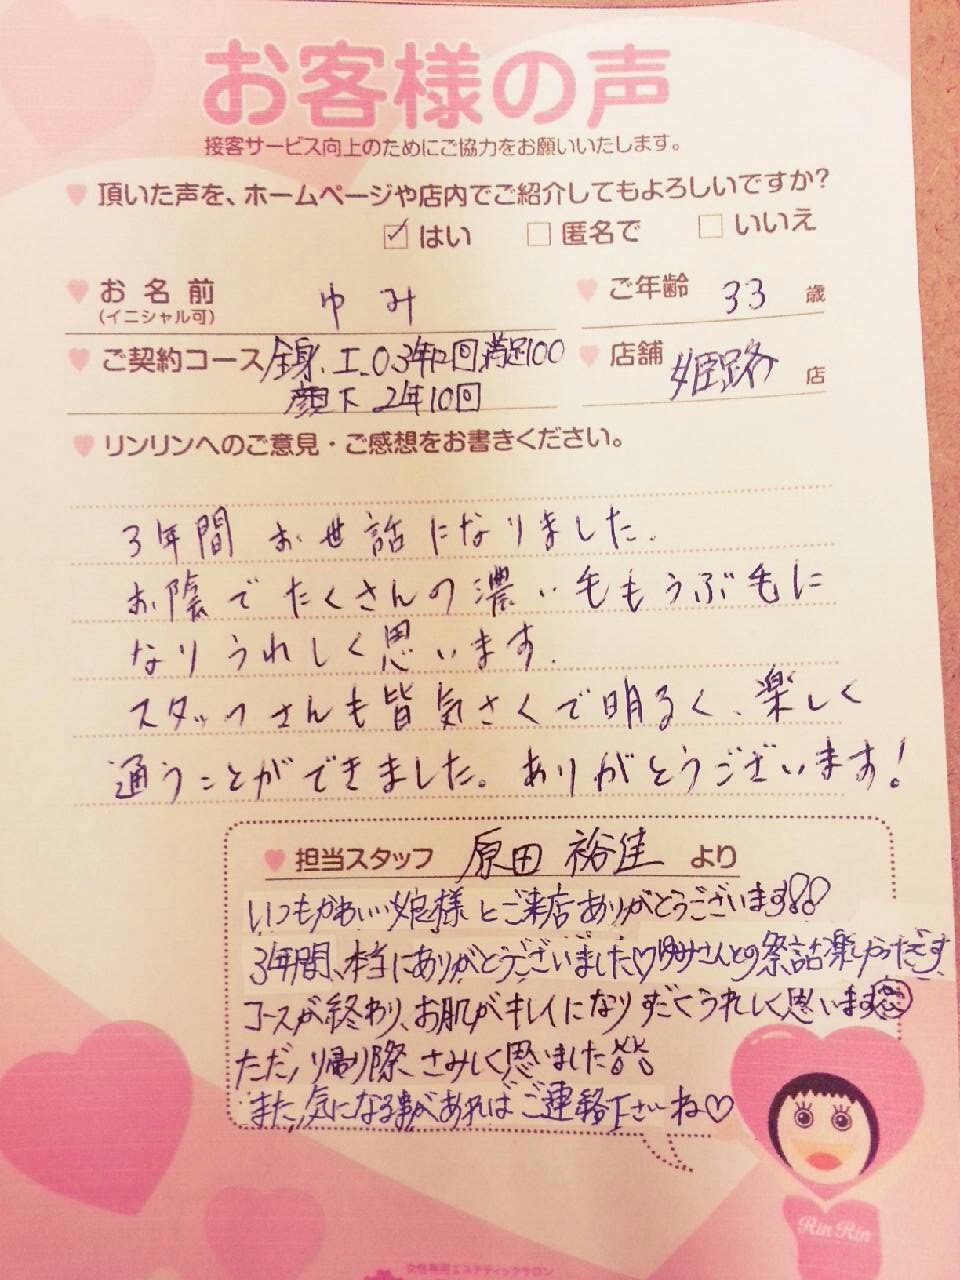 お客様の声
接客サービス向上のためにご協力をお願いいたします。
頂いた声を、ホームページや店内でご紹介してもよろしいですか?
はい 匿名で いいえ
お名前 ゆみ ご年齢 33 歳
(イニシャル可)
ご契約コース 全身、I.O 3年12回 満足100 店舗 姫路 店
顔下 2年10回
リンリンへのご意見・ご感想をお書きください。
3年間 お世話になりました.
お陰でたくさんの濃い毛もうぶ毛に
なりうれしく思います.
スタッフさんも皆気さくで明るく、楽しく
通うことができました。ありがとうございます!
担当スタッフ 原田 裕佳 より
いつもかわいい娘様とご来店ありがとうございます!!
3年間、本当にありがとうございました♡ゆみさんとの祭話楽しかったです
コースが終わり、お肌がキレイになりすごくうれしく思います
ただ、帰り際、さみしく思いました
また、気になる事があればご連絡下さいね♡
Rin Rin
女性専用エステティックサロン